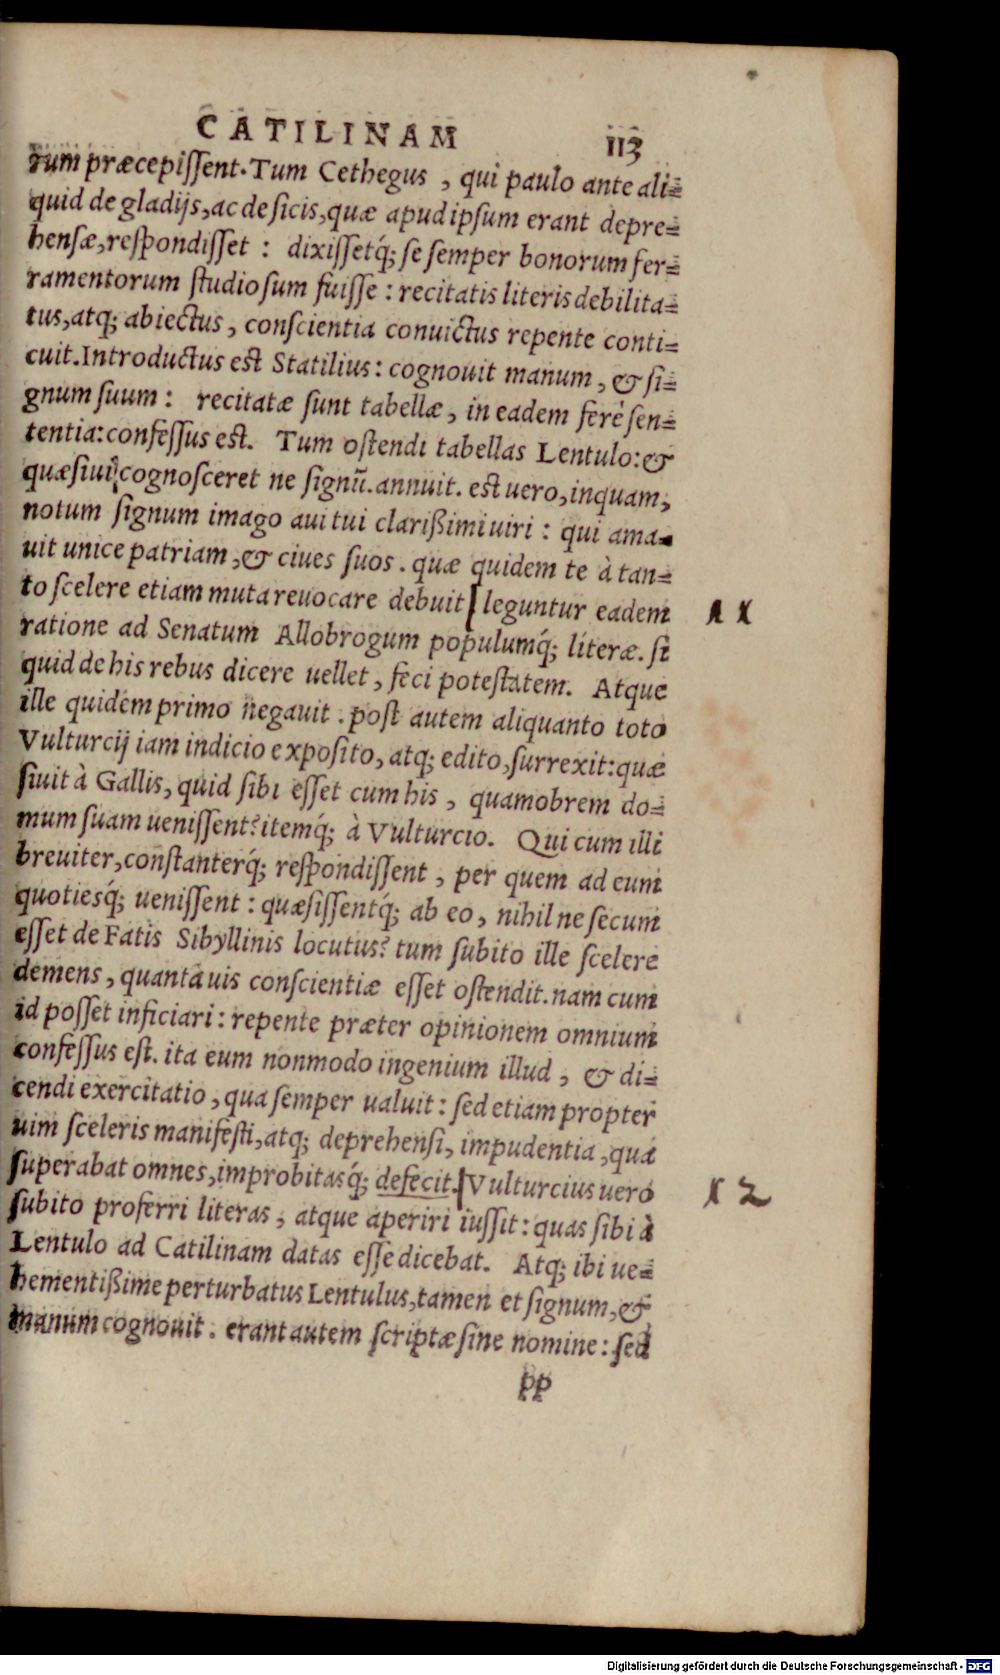 CATILINAM 113
rum præcepiſſent. Tum Cethegus, qui paulo ante ali=
quid de gladijs, ac de ſicis, quæ apud ipſum erant depre=
henſæ, reſpondiſſet: dixiſſetq́; ſe ſemper bonorum fer=
ramentorum ſtudioſum fuiſſe: recitatis literis debilita=
tus, atq; abiectus, conſcientia conuictus repente conti=
cuit. Introductus eſt Statilius: cognouit manum, & ſi=
gnum ſuum: recitatæ ſunt tabellæ, in eadem ferè ſen=
tentia: confeſſus eſt. Tum oſtendi tabellas Lentulo: &
quæſiui, cognoſceret ne ſignũ. annuit. eſt uero, inquam,
notum ſignum imago aui tui clarißimi uiri: qui ama=
uit unice patriam, & ciues ſuos. quæ quidem te à tan=
to ſcelere etiam muta reuocare debuit[ leguntur eadem
11
ratione ad Senatum Allobrogum populumq́; literæ. ſi
quid de his rebus dicere uellet, feci poteſtatem. Atque
ille quidem primo negauit. poſt autem aliquanto toto
Vulturcij iam indicio expoſito, atq; edito, ſurrexit: quæ
ſiuit à Gallis, quid ſibi eſſet cum his, quamobrem do=
mum ſuam ueniſſent? itemq́; à Vulturcio. Qui cum illi
breuiter, conſtanterq́; reſpondiſſent, per quem ad eum
quotiesq́; ueniſſent: quæſiſſentq́; ab eo, nihil ne ſecum
eſſet de Fatis Sibyllinis locutus? tum ſubito ille ſcelere
demens, quanta uis conſcientiæ eſſet oſtendit. nam cum
id poſſet inficiari: repente præter opinionem omnium
confeſſus eſt. ita eum nonmodo ingenium illud, & di=
cendi exercitatio, qua ſemper ualuit: ſed etiam propter
uim ſceleris manifeſti, atq; deprehenſi, impudentia, qua
ſuperabat omnes, improbitasq́; defecit.[ Vulturcius uero
12
ſubito proferri literas, atque aperiri iuſſit: quas ſibi à
Lentulo ad Catilinam datas eſſe dicebat. Atq; ibi ue=
hementißime perturbatus Lentulus, tamen et ſignum, &
manum cognouit. erant autem ſcriptæ ſine nomine: ſed
pp
Digitalisierung gefördert durch die Deutsche Forschungsgemeinschaft - DFG